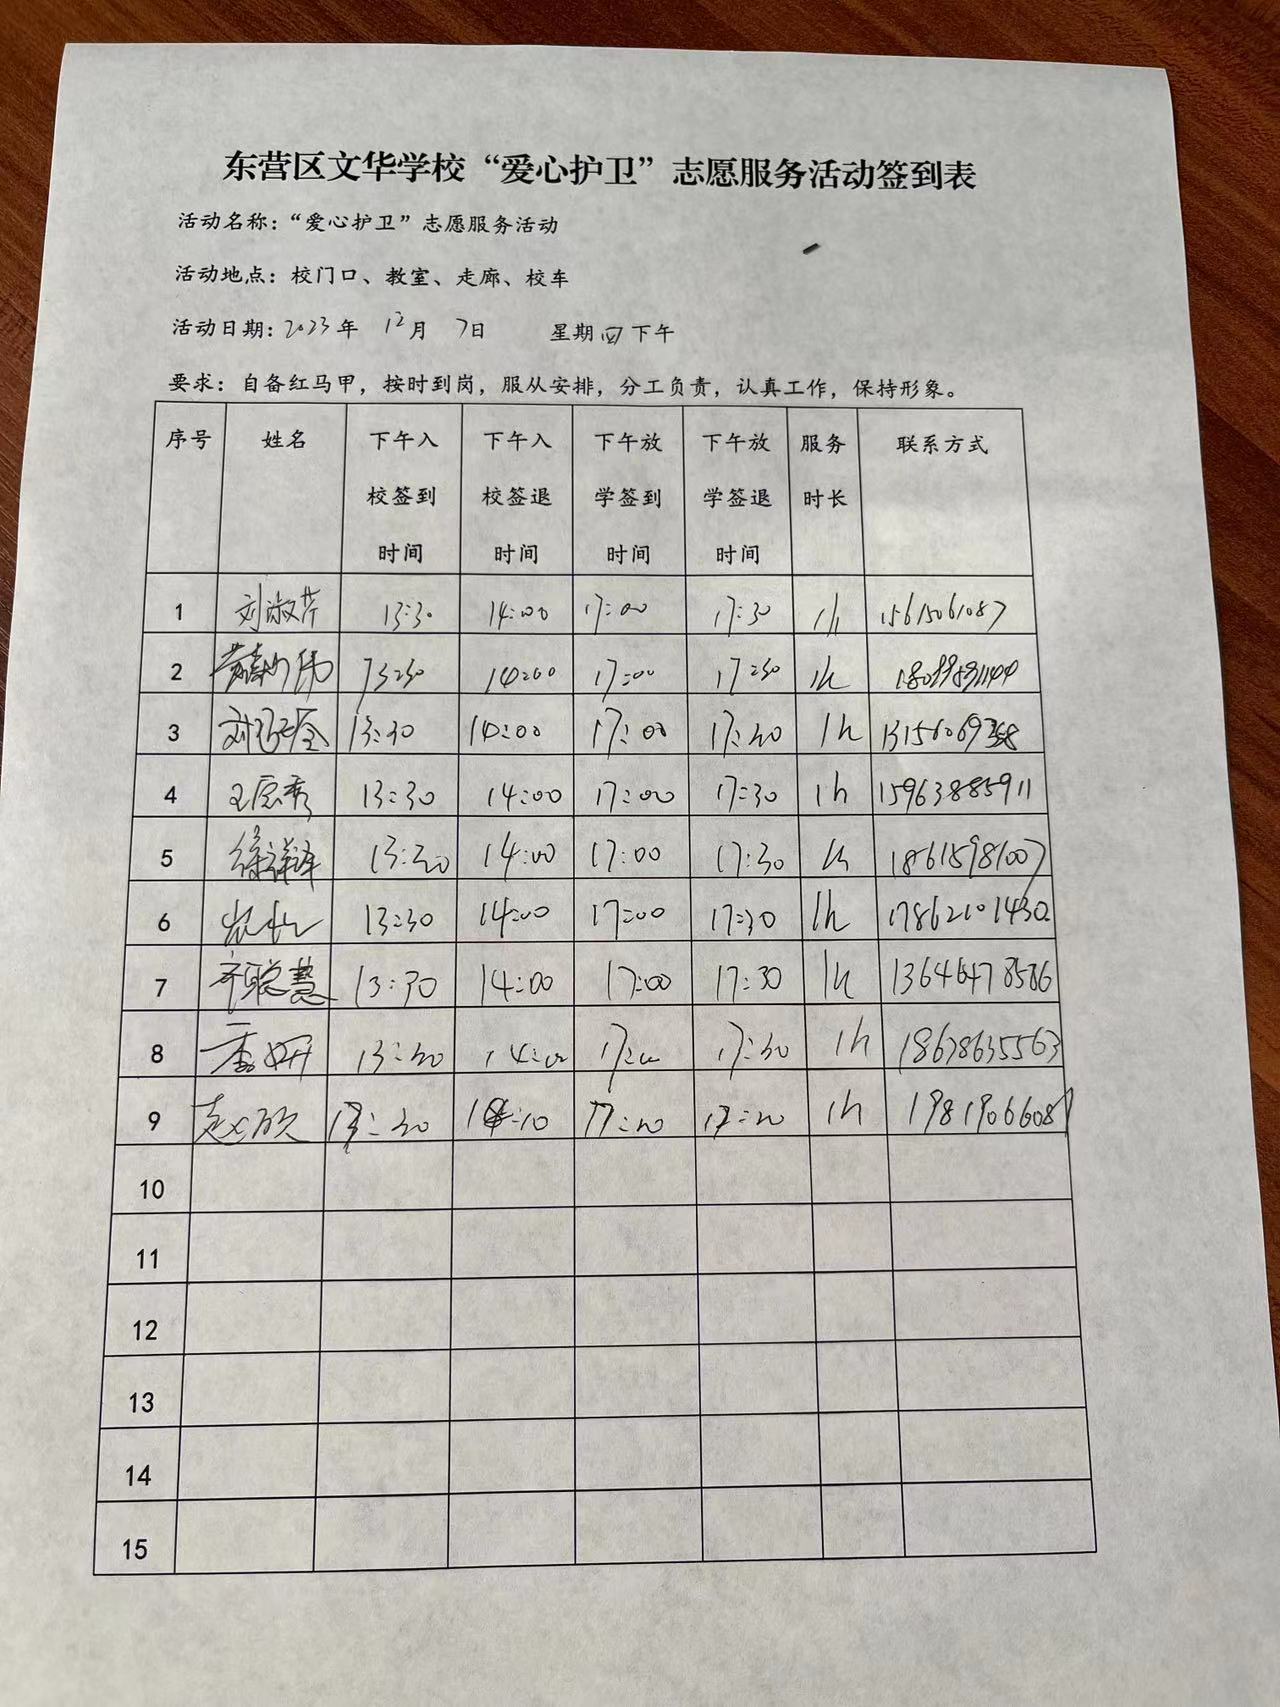 东营区文华学校“爱心护卫”志愿服务活动签到表
活动名称：“爱心护卫”志愿服务活动
活动地点：校门口、教室、走廊、校车
活动日期：2023年 12月 7日 星期四下午
要求：自备红马甲，按时到岗，服从安排，分工负责，认真工作，保持形象。
序号 姓名 下午入 下午入 下午放 下午放 服务 联系方式
校签到 校签退 学签到 学签退 时长
时间 时间 时间 时间
1 刘淑芹 13:30 14:00 17:00 17:30 1h
2 13:30 14:00 17:00 17:30 1h
3 13:30 14:00 17:00 17:30 1h
4 13:30 14:00 17:00 17:30 1h 15963885911
5 13:30 14:00 17:00 17:30 1h 18615981007
6 13:30 14:00 17:00 17:30 1h 17862101430
7 齐聪慧 13:30 14:00 17:00 17:30 1h 13646478586
8 季妍 13:30 14:00 17:00 17:30 1h
9 1h
10
11
12
13
14
15